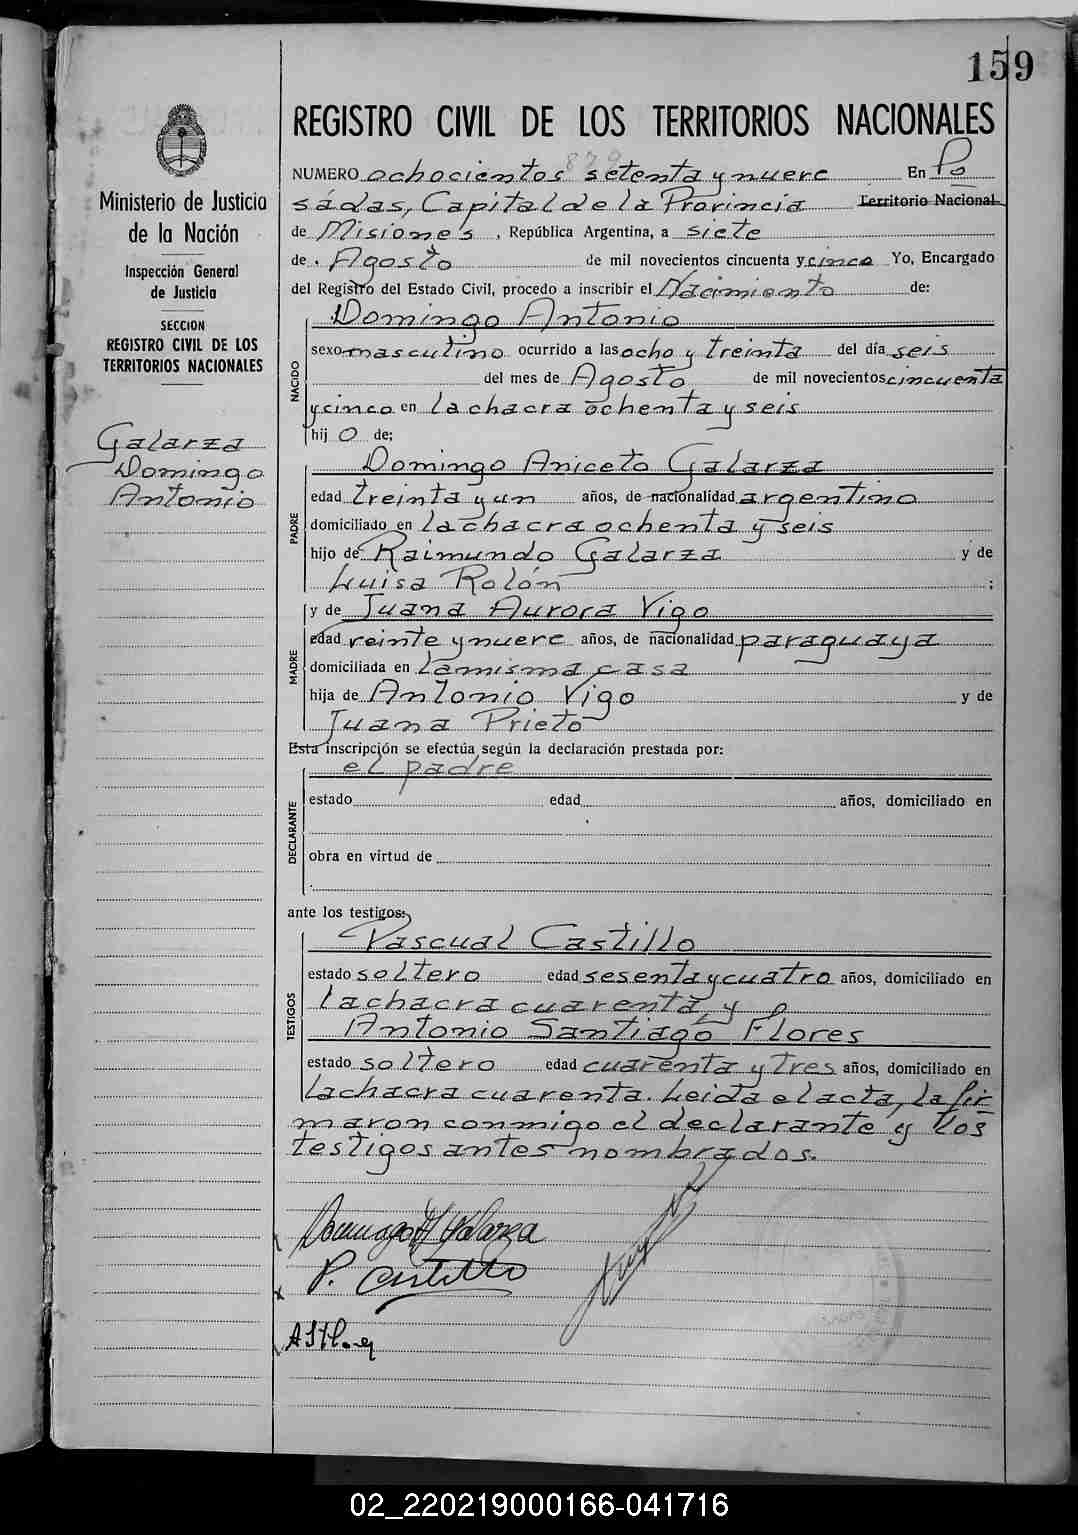 159
REGISTRO CIVIL DE LOS TERRITORIOS NACIONALES
Ministerio de Justicia
de la Nación
Inspección General
de Justicia
SECCION
REGISTRO CIVIL DE LOS
TERRITORIOS NACIONALES
Galarza
Domingo
Antonio
879
NUMERO ochocientos setenta y nueve En Po
sadas, Capital de la Provincia Territorio Nacional
de Misiones, República Argentina, a siete
de Agosto de mil novecientos cincuenta y cinco Yo, Encargado
del Registro del Estado Civil, procedo a inscribir el Nacimiento de:
NACIDO
Domingo Antonio
sexo masculino ocurrido a las ocho y treinta del día seis
del mes de Agosto de mil novecientos cincuenta
y cinco en la chacra ochenta y seis
hijo de;
PADRE
Domingo Aniceto Galarza
edad treinta y un años, de nacionalidad argentino
domiciliado en la chacra ochenta y seis
hijo de Raimundo Galarza y de
Luisa Rolón ;
MADRE
y de Juana Aurora Vigo
edad veinte y nueve años, de nacionalidad paraguaya
domiciliada en la misma casa
hija de Antonio Vigo y de
Juana Prieto
Esta inscripción se efectúa según la declaración prestada por:
DECLARANTE
el padre
estado edad años, domiciliado en
obra en virtud de
ante los testigos:
TESTIGOS
Pascual Castillo
estado soltero edad sesenta y cuatro años, domiciliado en
la chacra cuarenta, y
Antonio Santiago Flores
estado soltero edad cuarenta y tres años, domiciliado en
la chacra cuarenta. Leida el acta, la fir
maron conmigo el declarante y los
testigos antes nombrados.
Domingo A Galarza
P. Castillo
02_220219000166-041716